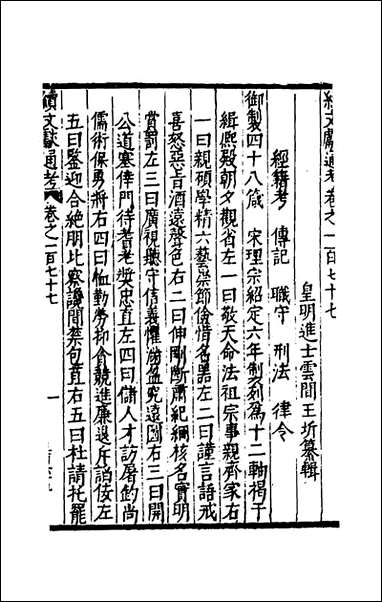 續文獻通考卷之一百七十七
皇明進士雲間王圻纂輯
經籍考 傳記 職守 刑法 律令
御製四十八箴 宋理宗紹定六年製列爲十二軸揭于
緝熙殿朝夕觀省左一曰敬天命法祖宗事親齊家右
一曰親碩學精六藝崇節儉惜名器左二曰謹言語戒
喜怒惡旨酒遠聲色右二曰伸剛斷肅紀綱核名實明
賞罰左三曰廣視聽守信義懼滿盈究遠圖右三曰開
公道塞倖門待耆老奬忠直左四曰儲人才訪屠釣尚
儒術保勇將右四曰恤勤勞抑貪競進廉退斥諂佞左
五曰鑒迎合絶朋比察讒間禁包苴右五曰杜請托罷
續文獻通考 卷之一百七十七 一